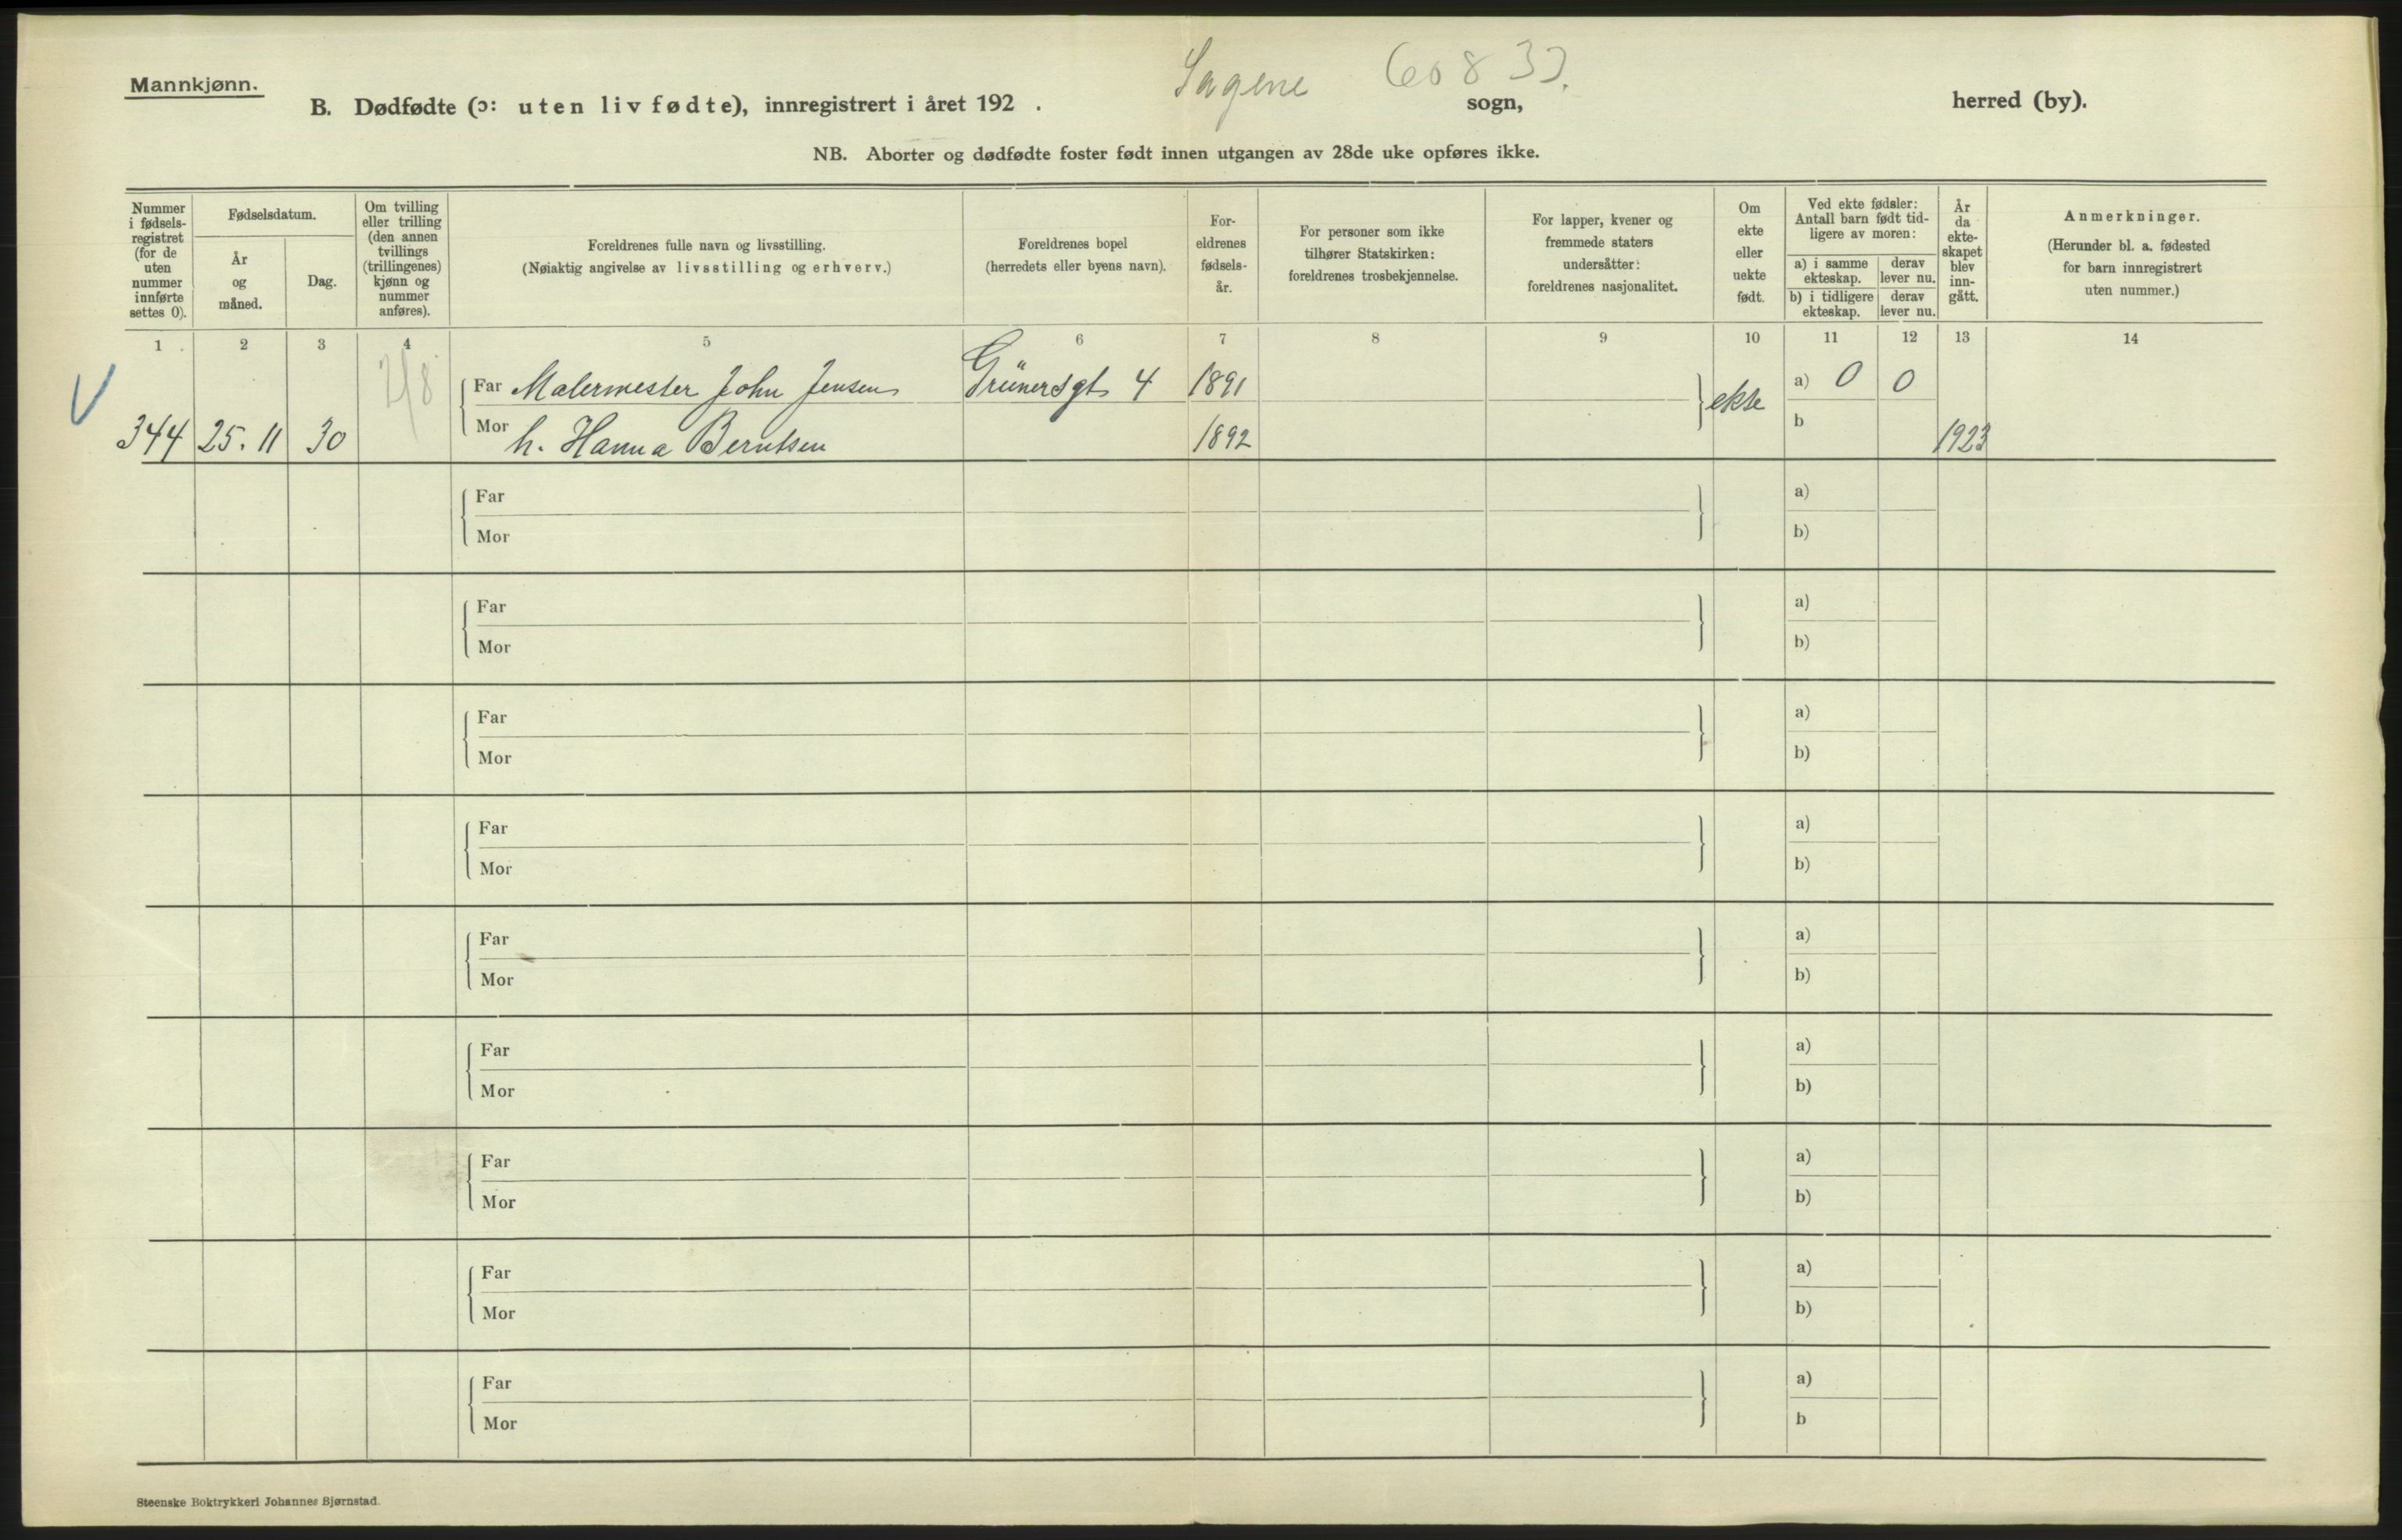 Mannkjønn.
Sagene
B. Dødfødte (ɔ: uten liv fødte), innregistrert i året 192 . sogn, herred (by).
NB. Aborter og dødfødte foster født innen utgangen av 28de uke opføres ikke.
Nummer i fødsels-
registret
(for de
uten
nummer
innførte
settes 0).
Fødselsdatum.
År
og
måned.
Dag.
Om tvilling
eller trilling
(den annen
tvillings
(trillingenes)
kjønn og
nummer
anføres).
Foreldrenes fulle navn og livsstilling.
(Nøiaktig angivelse av livsstilling og erhverv.)
Foreldrenes bopel
(herredets eller byens navn).
For-
eldrenes
fødsels-
år.
For personer som ikke
tilhører Statskirken:
foreldrenes trosbekjennelse.
For lapper, kvener og
fremmede staters
undersåtter:
foreldrenes nasjonalitet.
Om
ekte
eller
uekte
født.
Ved ekte fødsler:
Antall barn født tid-
ligere av moren:
a) i samme
ekteskap.
derav
lever nu.
b) i tidligere
ekteskap.
derav
lever nu.
År
da
ekte-
skapet
blev
inn-
gått.
Anmerkninger.
(Herunder bl. a. fødested
for barn innregistrert
uten nummer.)
1 2 3 4 5 6 7 8 9 10 11 12 13 14
Far Malermester John Jensen Grünersgt 4 1891 ekte a) 0 0
344 25. 11 30 Mor h. Hanna Berntsen 1892 b 1923
Far a)
Mor b)
Far a)
Mor b)
Far a)
Mor b)
Far a)
Mor b)
Far a)
Mor b)
Far a)
Mor b)
Far a)
Mor b)
Far a)
Mor b)
Far a)
Mor b
Steenske Boktrykkeri Johannes Bjørnstad.